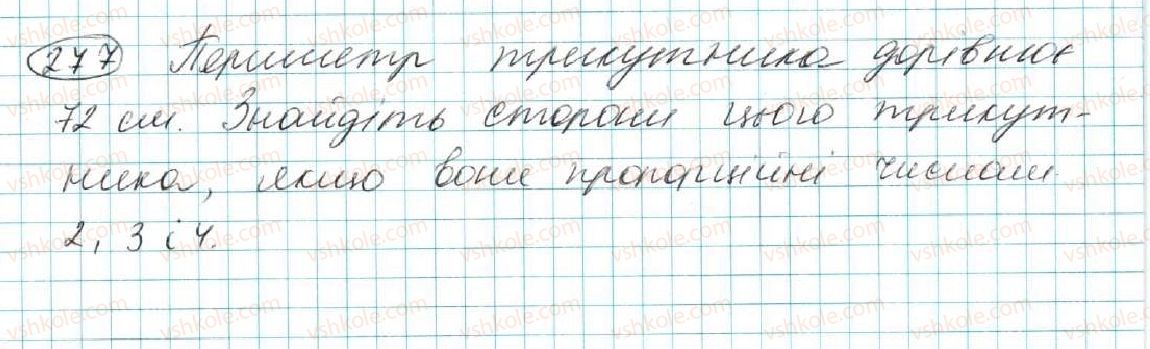 277 Периметр трикутника дорівнює
72 см. Знайдіть сторони цього трикут-
ника, якщо вони пропорційні числам
2, 3 і 4.